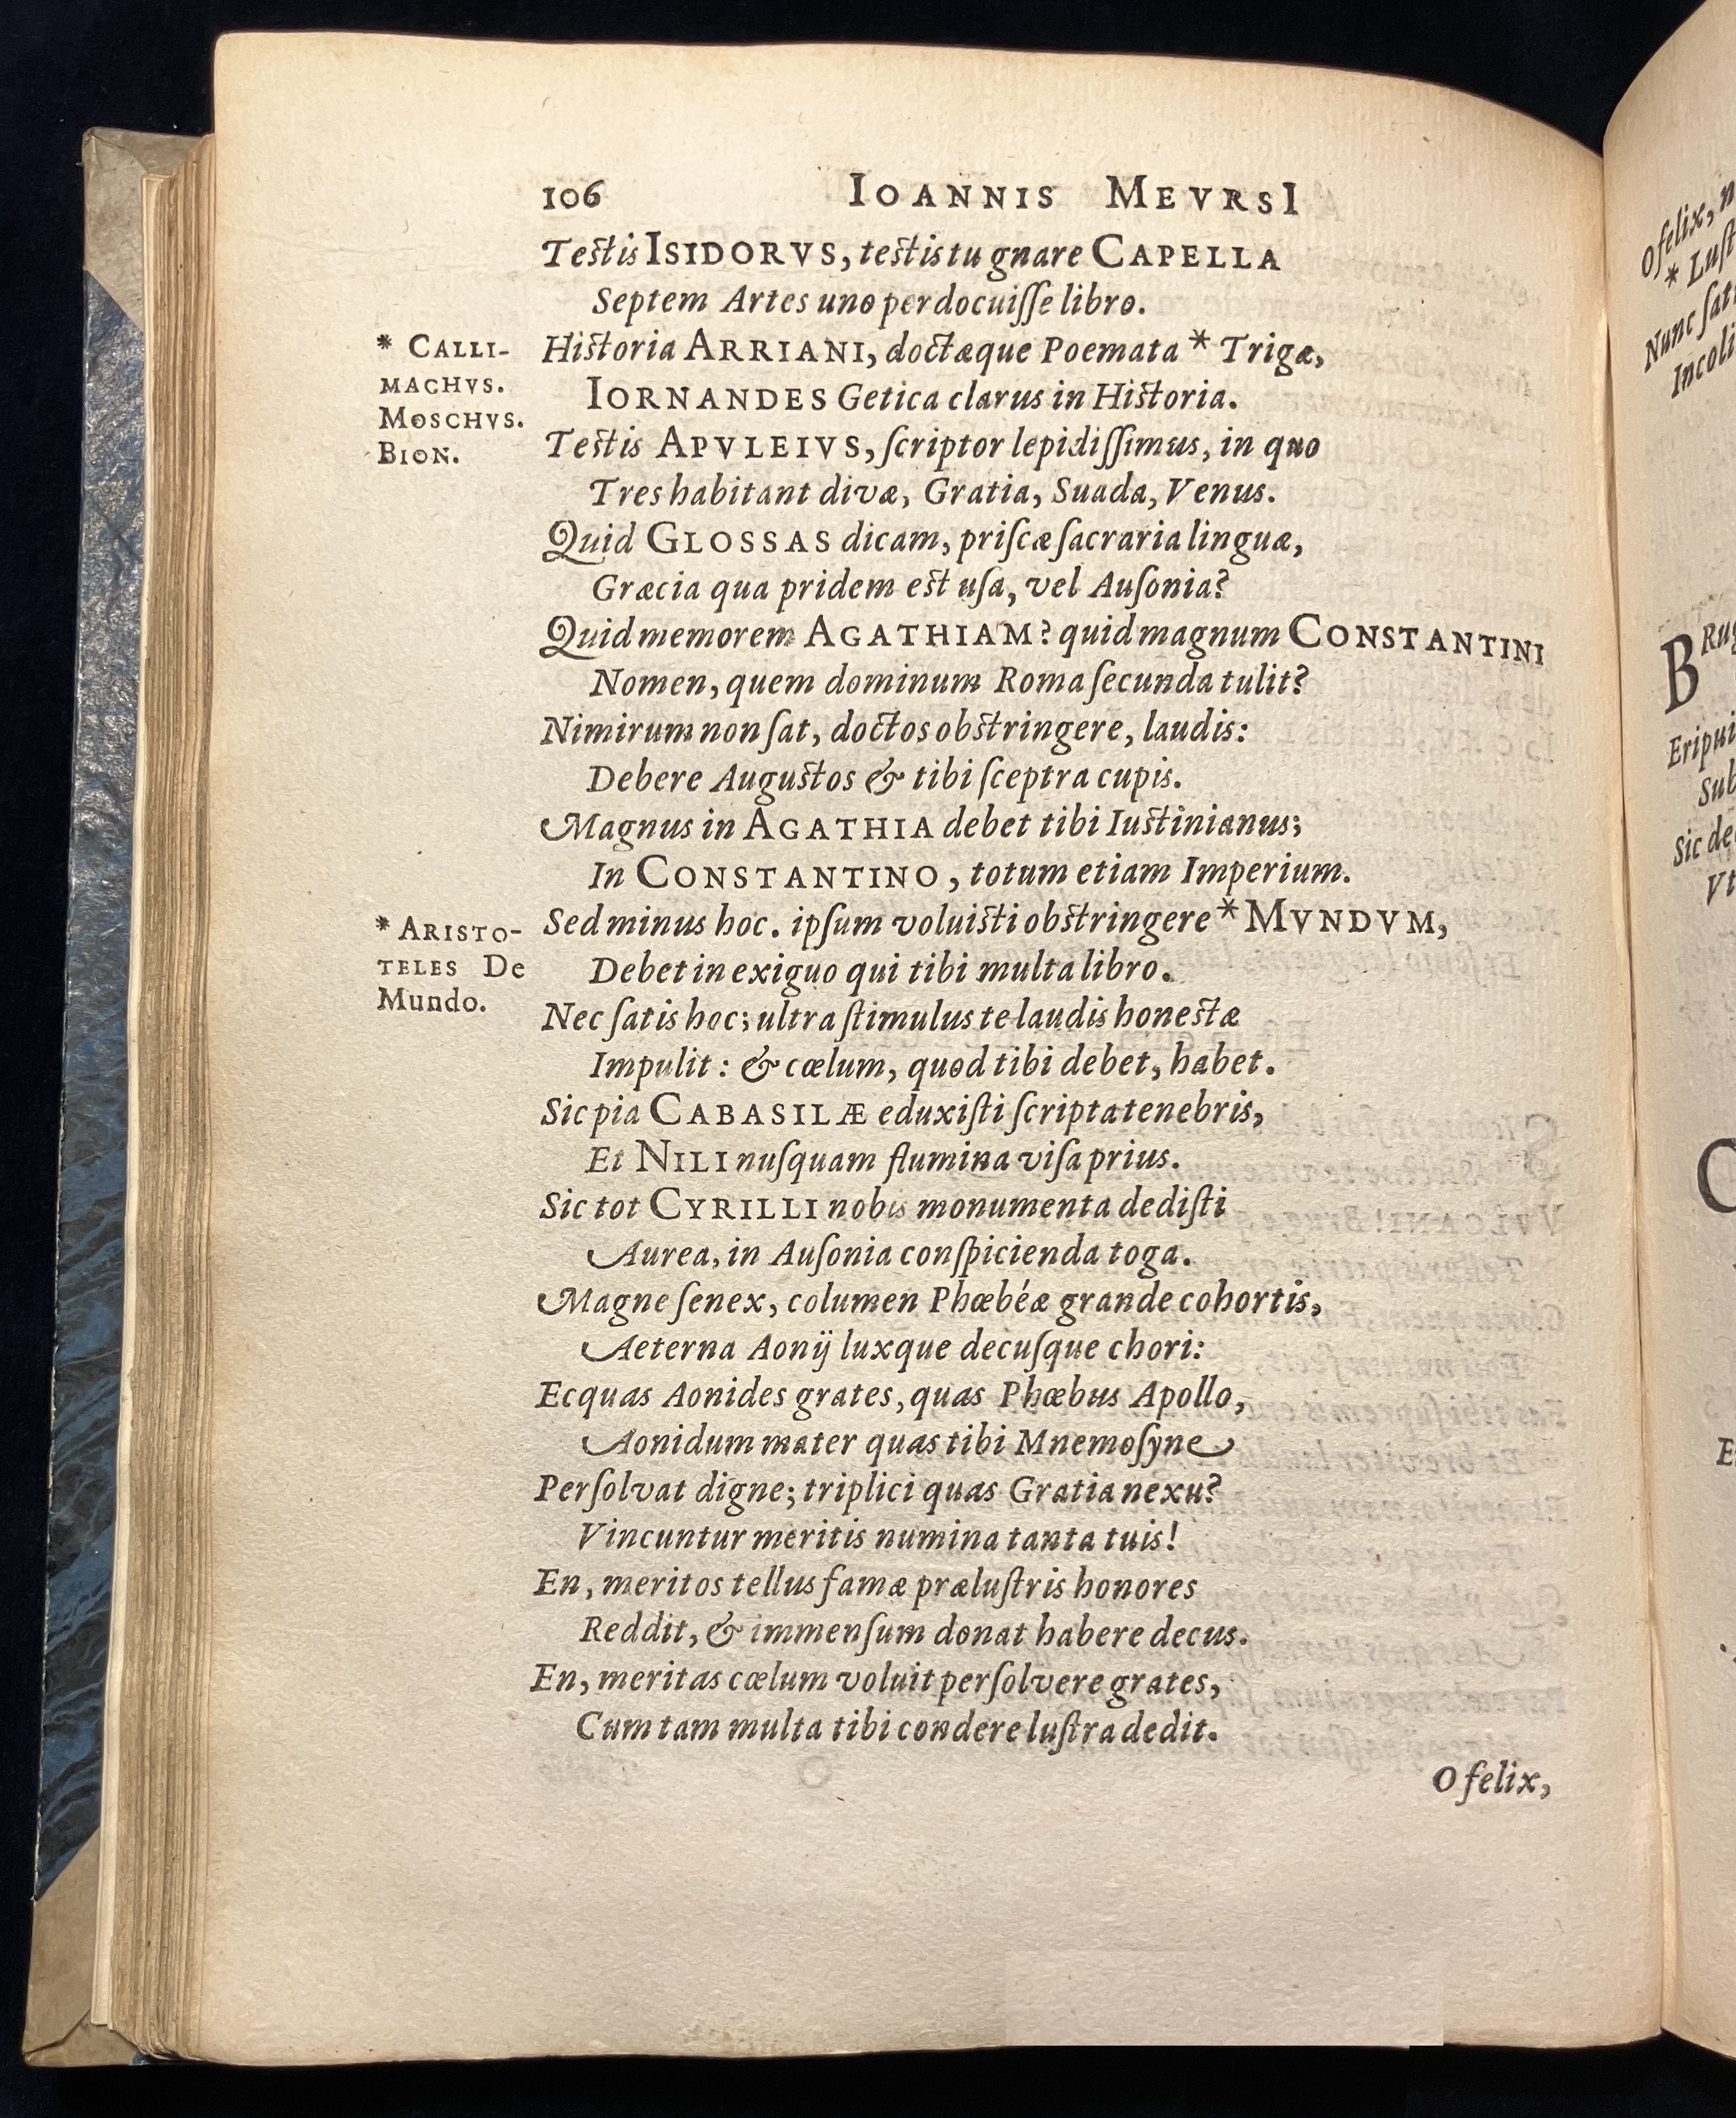 106 IOANNIS MEVRSI
Testis ISIDORVS, testis tu gnare CAPELLA
Septem Artes uno perdocuiſſe libro.
* CALLI-
MACHVS.
MOSCHVS.
BION.
Historia ARRIANI, doctæque Poemata * Trigæ,
IORNANDES Getica clarus in Historia.
Testis APVLEIVS, ſcriptor lepidiſſimus, in quo
Tres habitant divæ, Gratia, Suada, Venus.
Quid GLOSSAS dicam, priſcæ ſacraria linguæ,
Græcia qua pridem est uſa, vel Auſonia?
Quid memorem AGATHIAM? quid magnum CONSTANTINI
Nomen, quem dominum Roma ſecunda tulit?
Nimirum non ſat, doctos obstringere, laudis:
Debere Augustos & tibi ſceptra cupis.
Magnus in AGATHIA debet tibi Iustinianus;
In CONSTANTINO, totum etiam Imperium.
* ARISTO-
TELES De
Mundo.
Sed minus hoc. ipſum voluisti obstringere * MVNDVM,
Debet in exiguo qui tibi multa libro.
Nec ſatis hoc; ultra ſtimulus te laudis honestæ
Impulit: & cœlum, quod tibi debet, habet.
Sic pia CABASILÆ eduxiſti ſcripta tenebris,
Et NILI nuſquam flumina viſa prius.
Sic tot CYRILLI nobis monumenta dediſti
Aurea, in Auſonia conſpicienda toga.
Magne ſenex, columen Phœbéæ grande cohortis,
Aeterna Aonij luxque decuſque chori:
Ecquas Aonides grates, quas Phœbus Apollo,
Aonidum mater quas tibi Mnemoſyne
Perſolvat digne; triplici quas Gratia nexu?
Vincuntur meritis numina tanta tuis!
En, meritos tellus famæ præluſtris honores
Reddit, & immenſum donat habere decus.
En, meritas cœlum voluit perſolvere grates,
Cum tam multa tibi condere luſtra dedit.
O felix,
O felix,
Nunc
B
Sic